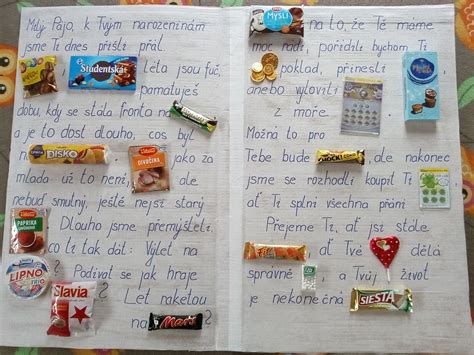 Milý Pájo, k Tvým narozeninám
jsme Ti dnes přišli přát.
Studentská Leta jsou fuč,
pamatuješ
dobu, kdy se stála fronta na
a je to dost dlouho, cos byl
DISKO DIVOČINA jako za
mlada už to není, ale
nebuď smutný, ještě nejsi starý
PAPRIKA
Dlouho jsme přemýšleli,
co ti tak dát: Výlet na
LIPNO ? Podívat se jak hraje
Slavia ? Let raketou
na Mars ?
MYSLI na to, že Tě máme
moc rádi, pořídili bychom Ti
poklad, přinesli
anebo vylovili
z moře
Možná to pro
Tebe bude, ale nakonec
jsme se rozhodli koupit Ti
ať Ti splní všechna přání
Přejeme Ti, ať jsi stále
, ať Tvé dělá
správně a Tvůj život
je nekonečná SIESTA